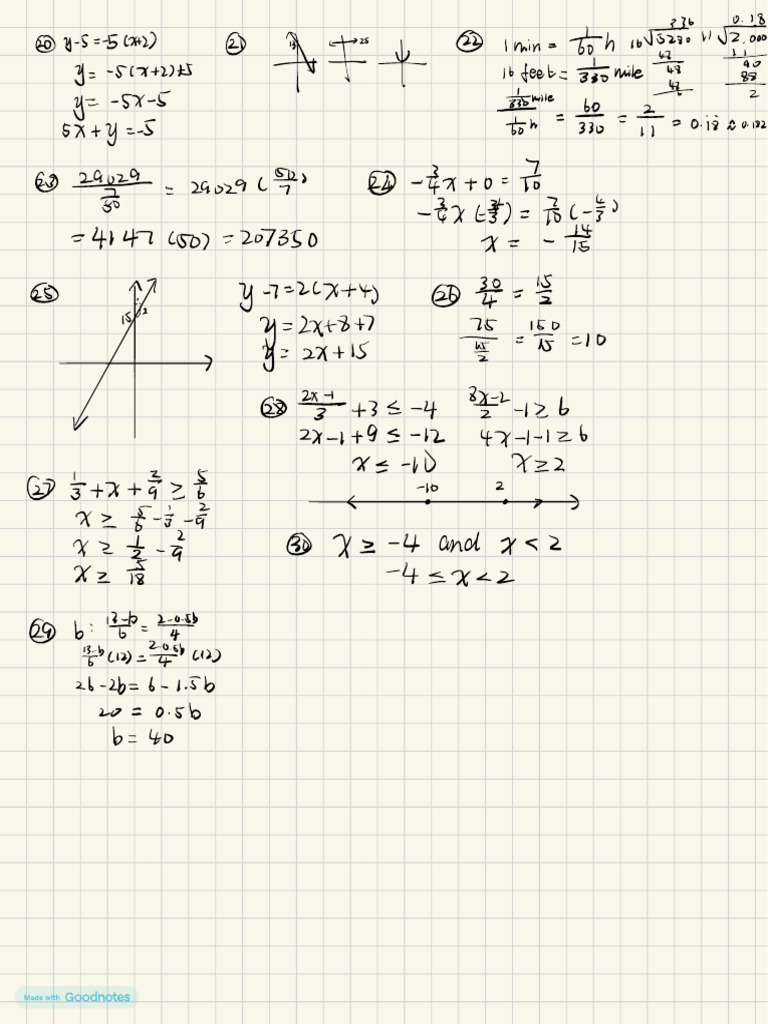 ⑳ y-5=-5(x+2)
y = -5(x+2)+5
y = -5x-5
5x+y=-5
㉑ 15 25
㉒ 1 min = 1/60 h
16 feet = 1/330 mile
(1/330 mile)/(1/60 h) = 60/330 = 2/11 = 0.18 ≈ 0.182
336
16√5280
48
48
48
0.18
11√2.000
11
90
88
2
㉓ 29029/(7/50) = 29029(50/7)
= 4147(50) = 207350
㉔ -3/4x+0 = 7/10
-3/4x(-4/3) = 7/10(-4/3)
x = -14/15
㉕ 15 2
y-7=2(x+4)
y=2x+8+7
y= 2x+15
㉖ 30/4 = 15/2
75/(15/2) = 150/15 = 10
㉘ (2x-1)/3 +3 ≤ -4
2x-1+9 ≤ -12
x ≤ -10
(8x-2)/2 -1 ≥ 6
4x-1-1 ≥ 6
x ≥ 2
-10 2
㉗ 1/3 + x + 2/9 ≥ 5/6
x ≥ 5/6 - 1/3 - 2/9
x ≥ 1/2 - 2/9
x ≥ 5/18
㉚ x ≥ -4 and x < 2
-4 ≤ x < 2
㉙ b: (13-b)/6 = (2-0.5b)/4
(13-b)/6 (12) = (2-0.5b)/4 (12)
26-2b = 6-1.5b
20 = 0.5b
b = 40
Made with Goodnotes